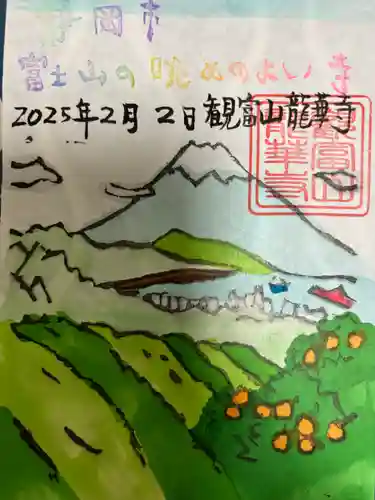 静岡市
富士山の眺めのよい寺
2025年2月2日観富山龍華寺
観富山
龍華寺